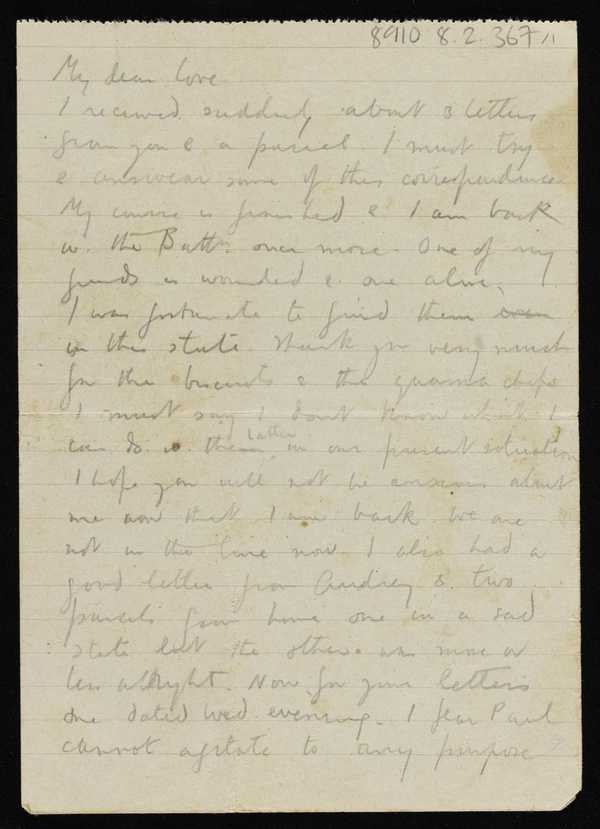 8910 8.2.367/1
My dear love
I received suddenly about 3 letters
from you & a parcel. I must try
& answear some of this correspondence
My course is finished & I am back
w. the Battn once more. One of my
friends is wounded & one alive.
I was fortunate to find them even
in this state. Thank you very much
for the biscuits & the quassia chips
I must say I dont know what I
can do w. them latter in our present situation
I hope you will not be anxious about
me now that I am back. We are
not in the line now. I also had a
good letter from Audrey & two
parcels from home one in a sad
state but the other was more or
less allright. Now for your letters
one dated Wed. evening. I fear Paul
cannot agitate to any purpose